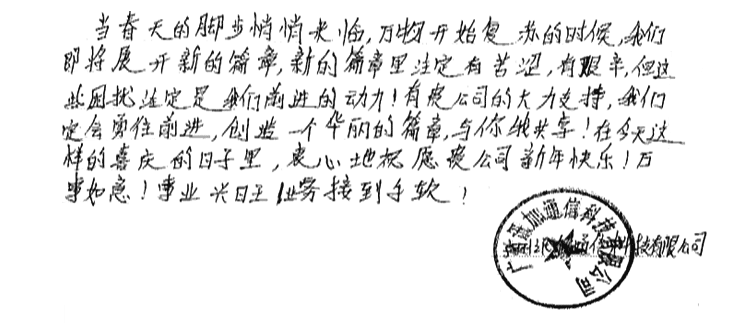 当春天的脚步悄悄来临，万物开始复苏的时候，我们
即将展开新的篇章，新的篇章里注定有苦涩，有艰辛，但这
些困扰注定是我们前进的动力！有贵公司的大力支持，我们
定会勇往前进，创造一个华丽的篇章，与你彼共享！在今天这
样的喜庆的日子里，衷心地祝愿贵公司新年快乐！万
事如意！事业兴旺 业务接到手软！
通信科技有限公司
广 加通信科技有限公司